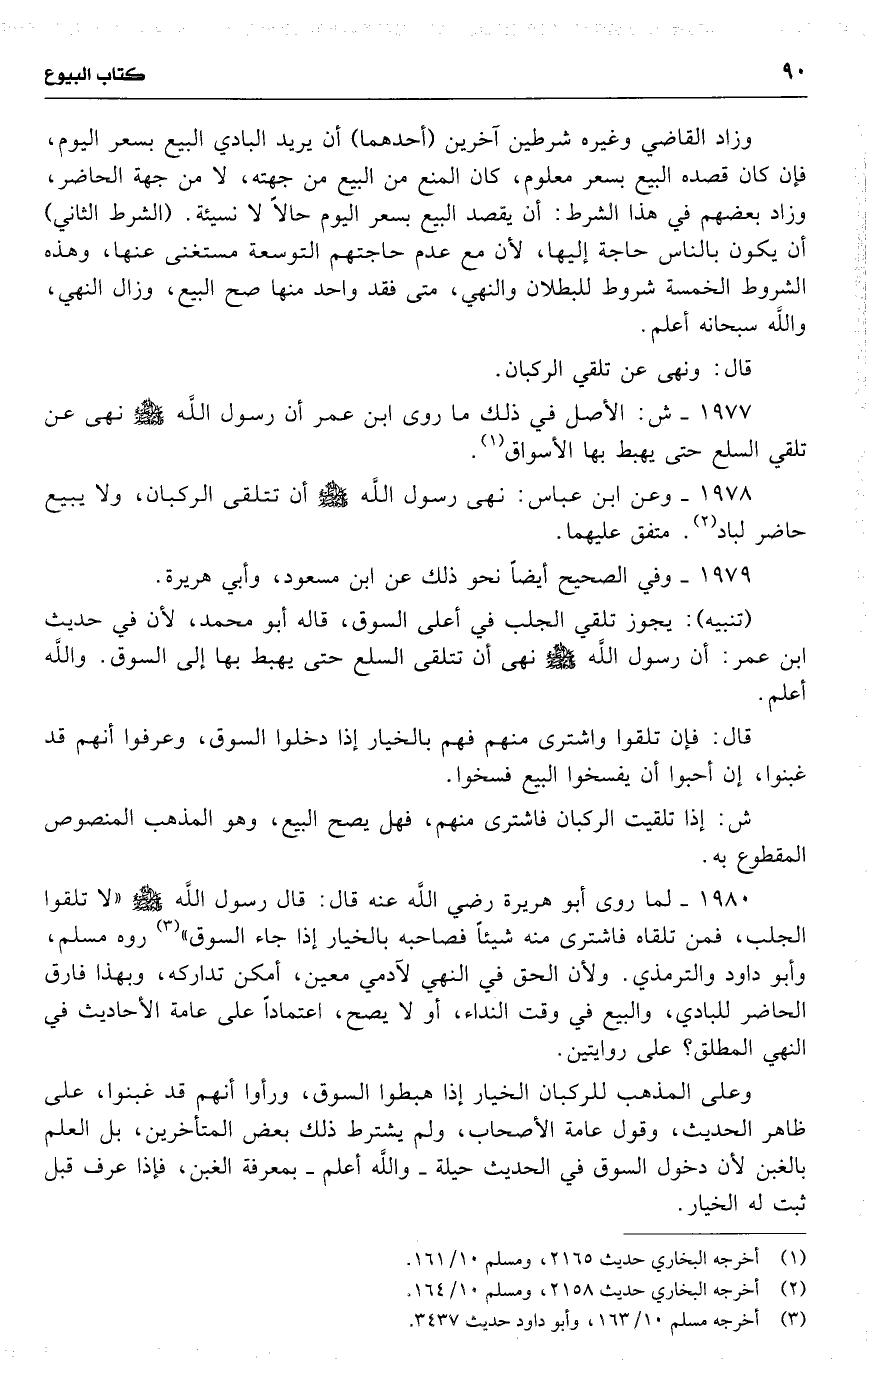 ٩٠ كتاب البيوع
وزاد القاضي وغيره شرطين آخرين (أحدهما) أن يريد البادي البيع بسعر اليوم،
فإن كان قصده البيع بسعر معلوم، كان المنع من البيع من جهته، لا من جهة الحاضر،
وزاد بعضهم في هذا الشرط: أن يقصد البيع بسعر اليوم حالاً لا نسيئة. (الشرط الثاني)
أن يكون بالناس حاجة إليها، لأن مع عدم حاجتهم التوسعة مستغنى عنها، وهذه
الشروط الخمسة شروط للبطلان والنهي، متى فقد واحد منها صح البيع، وزال النهي،
واللَّه سبحانه أعلم.
قال: ونهى عن تلقي الركبان.
١٩٧٧ ـ ش: الأصل في ذلك ما روى ابن عمر أن رسول اللَّه ﷺ نهى عن
تلقي السلع حتى يهبط بها الأسواق(١).
١٩٧٨ ـ وعن ابن عباس: نهى رسول اللَّه ﷺ أن تتلقى الركبان، ولا يبيع
حاضر لباد(٢). متفق عليهما.
١٩٧٩ ـ وفي الصحيح أيضاً نحو ذلك عن ابن مسعود، وأبي هريرة.
(تنبيه): يجوز تلقي الجلب في أعلى السوق، قاله أبو محمد، لأن في حديث
ابن عمر: أن رسول اللَّه ﷺ نهى أن تتلقى السلع حتى يهبط بها إلى السوق. واللَّه
أعلم.
قال: فإن تلقوا واشترى منهم فهم بالخيار إذا دخلوا السوق، وعرفوا أنهم قد
غبنوا، إن أحبوا أن يفسخوا البيع فسخوا.
ش: إذا تلقيت الركبان فاشترى منهم، فهل يصح البيع، وهو المذهب المنصوص
المقطوع به.
١٩٨٠ ـ لما روى أبو هريرة رضي اللَّه عنه قال: قال رسول اللَّه ﷺ «لا تلقوا
الجلب، فمن تلقاه فاشترى منه شيئاً فصاحبه بالخيار إذا جاء السوق»(٣) روه مسلم،
وأبو داود والترمذي. ولأن الحق في النهي لآدمي معين، أمكن تداركه، وبهذا فارق
الحاضر للبادي، والبيع في وقت النداء، أو لا يصح، اعتماداً على عامة الأحاديث في
النهي المطلق؟ على روايتين.
وعلى المذهب للركبان الخيار إذا هبطوا السوق، ورأوا أنهم قد غبنوا، على
ظاهر الحديث، وقول عامة الأصحاب، ولم يشترط ذلك بعض المتأخرين، بل العلم
بالغبن لأن دخول السوق في الحديث حيلة ـ واللَّه أعلم ـ بمعرفة الغبن، فإذا عرف قبل
ثبت له الخيار.
(١) أخرجه البخاري حديث ٢١٦٥، ومسلم ١٦١/١٠.
(٢) أخرجه البخاري حديث ٢١٥٨، ومسلم ١٦٤/١٠.
(٣) أخرجه مسلم ١٦٣/١٠، وأبو داود حديث ٣٤٣٧.